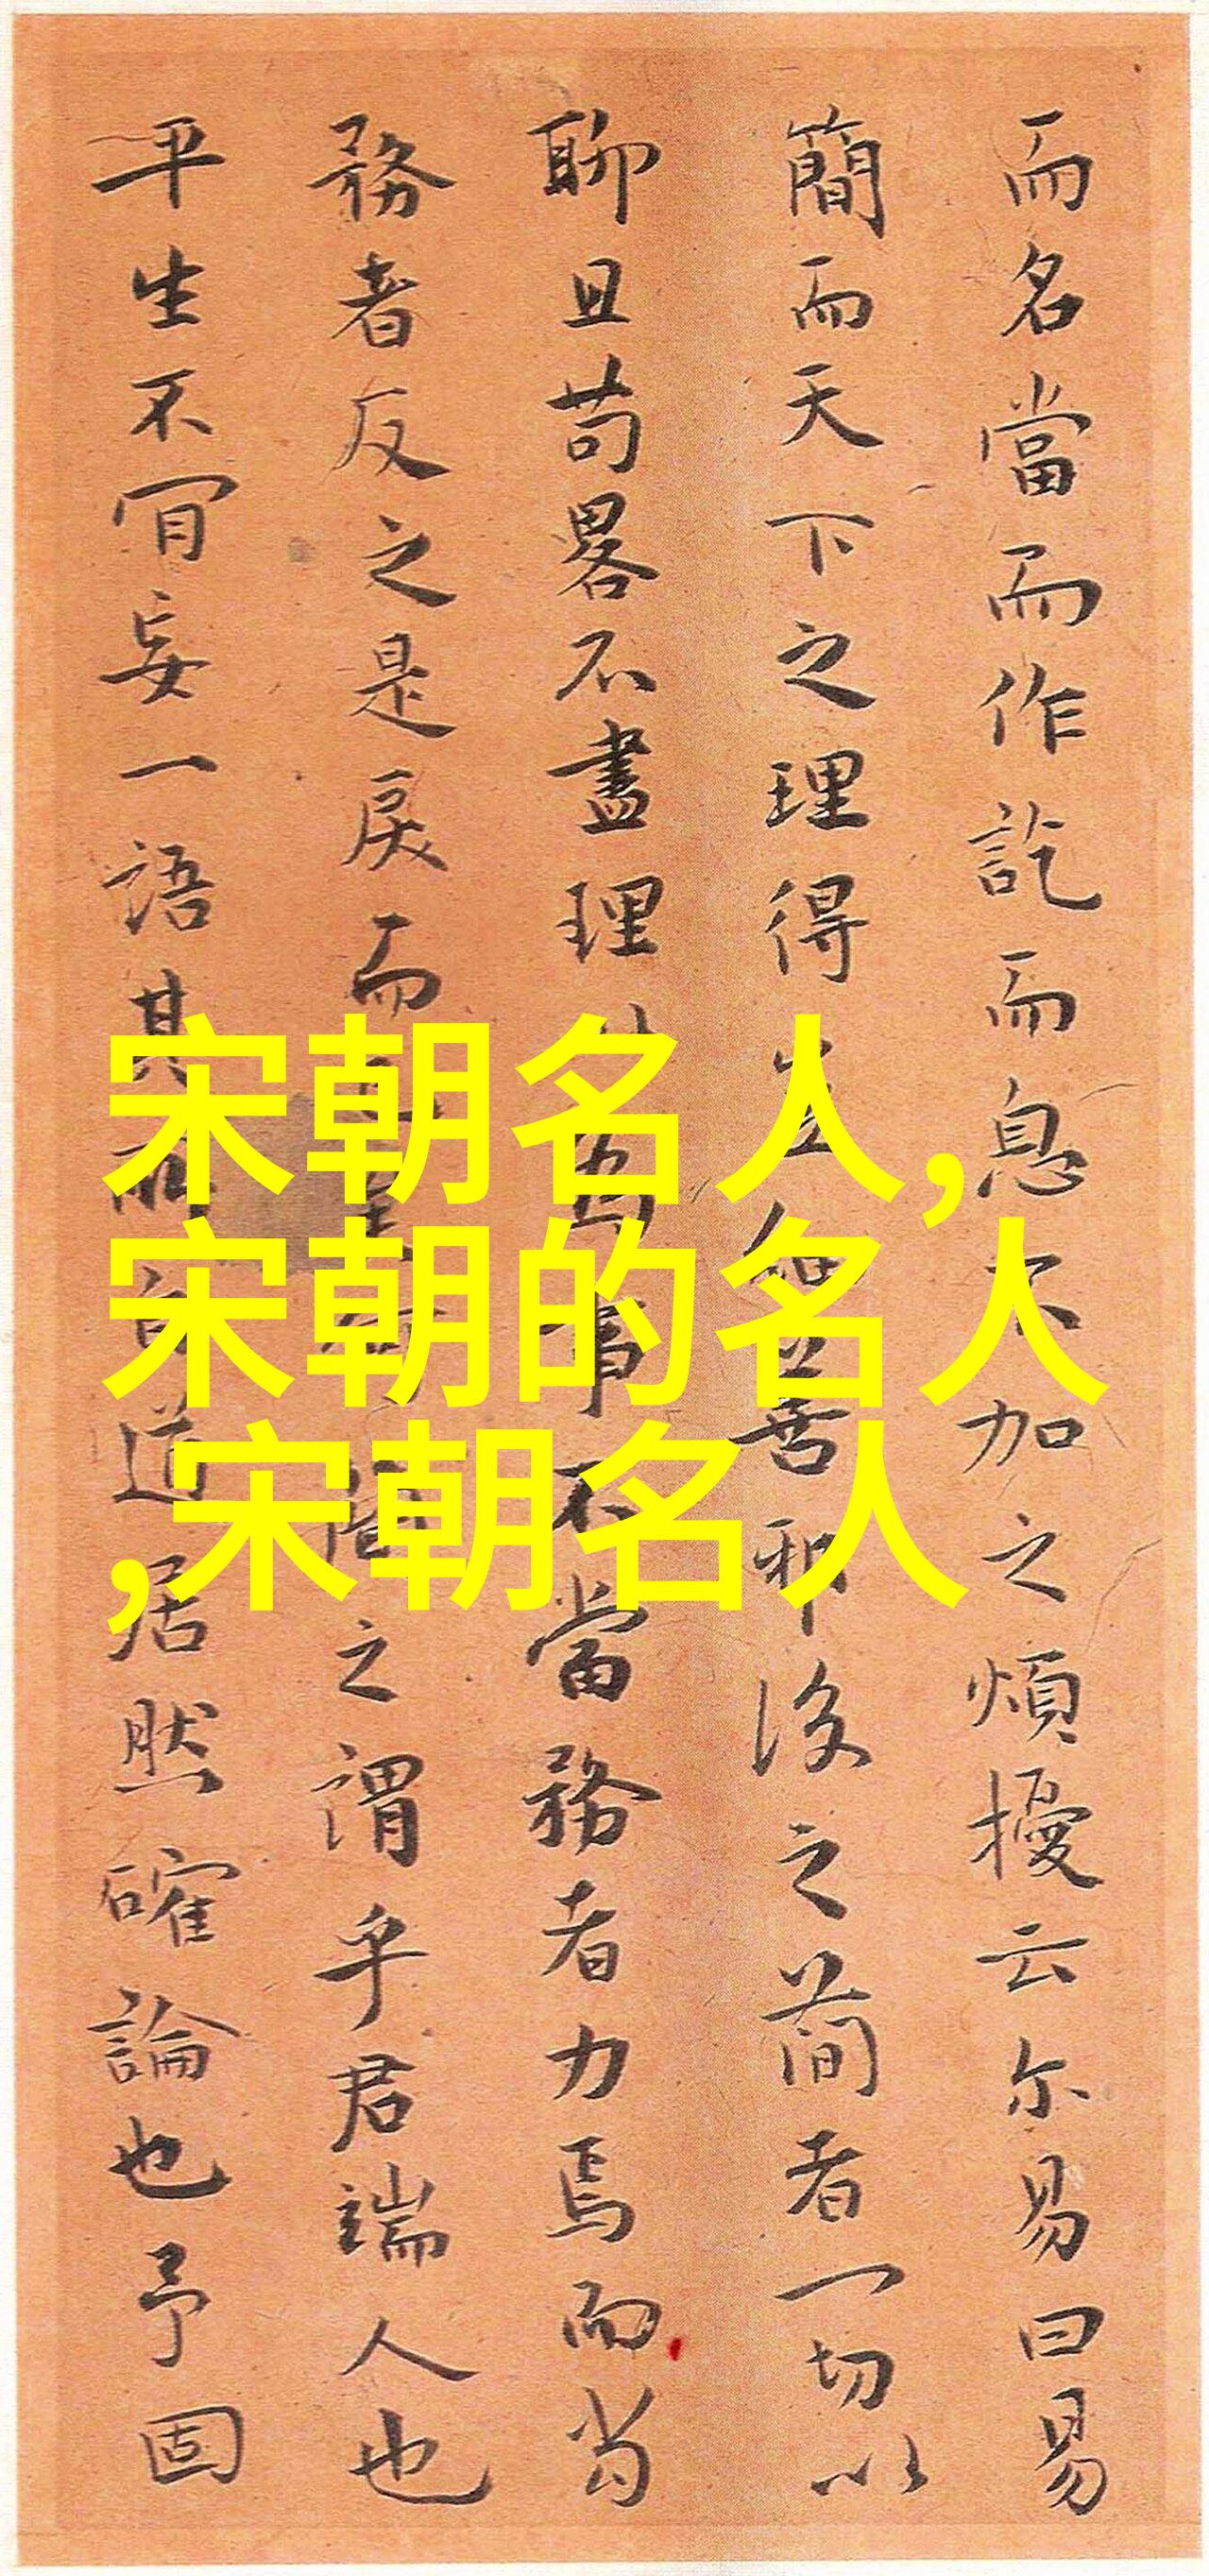 而名當而作訖而息不加之煩擾云尔易曰易
簡而天下之理得豈無善邪後之蕳者一切以
聊且苟畧不盡理為事不當務者力焉而當
務者反之是戾而之謂乎君端人也
平生不肎妄一語其所自道居然確論也予固
宋朝名人,
宋朝的名人
,宋朝名人